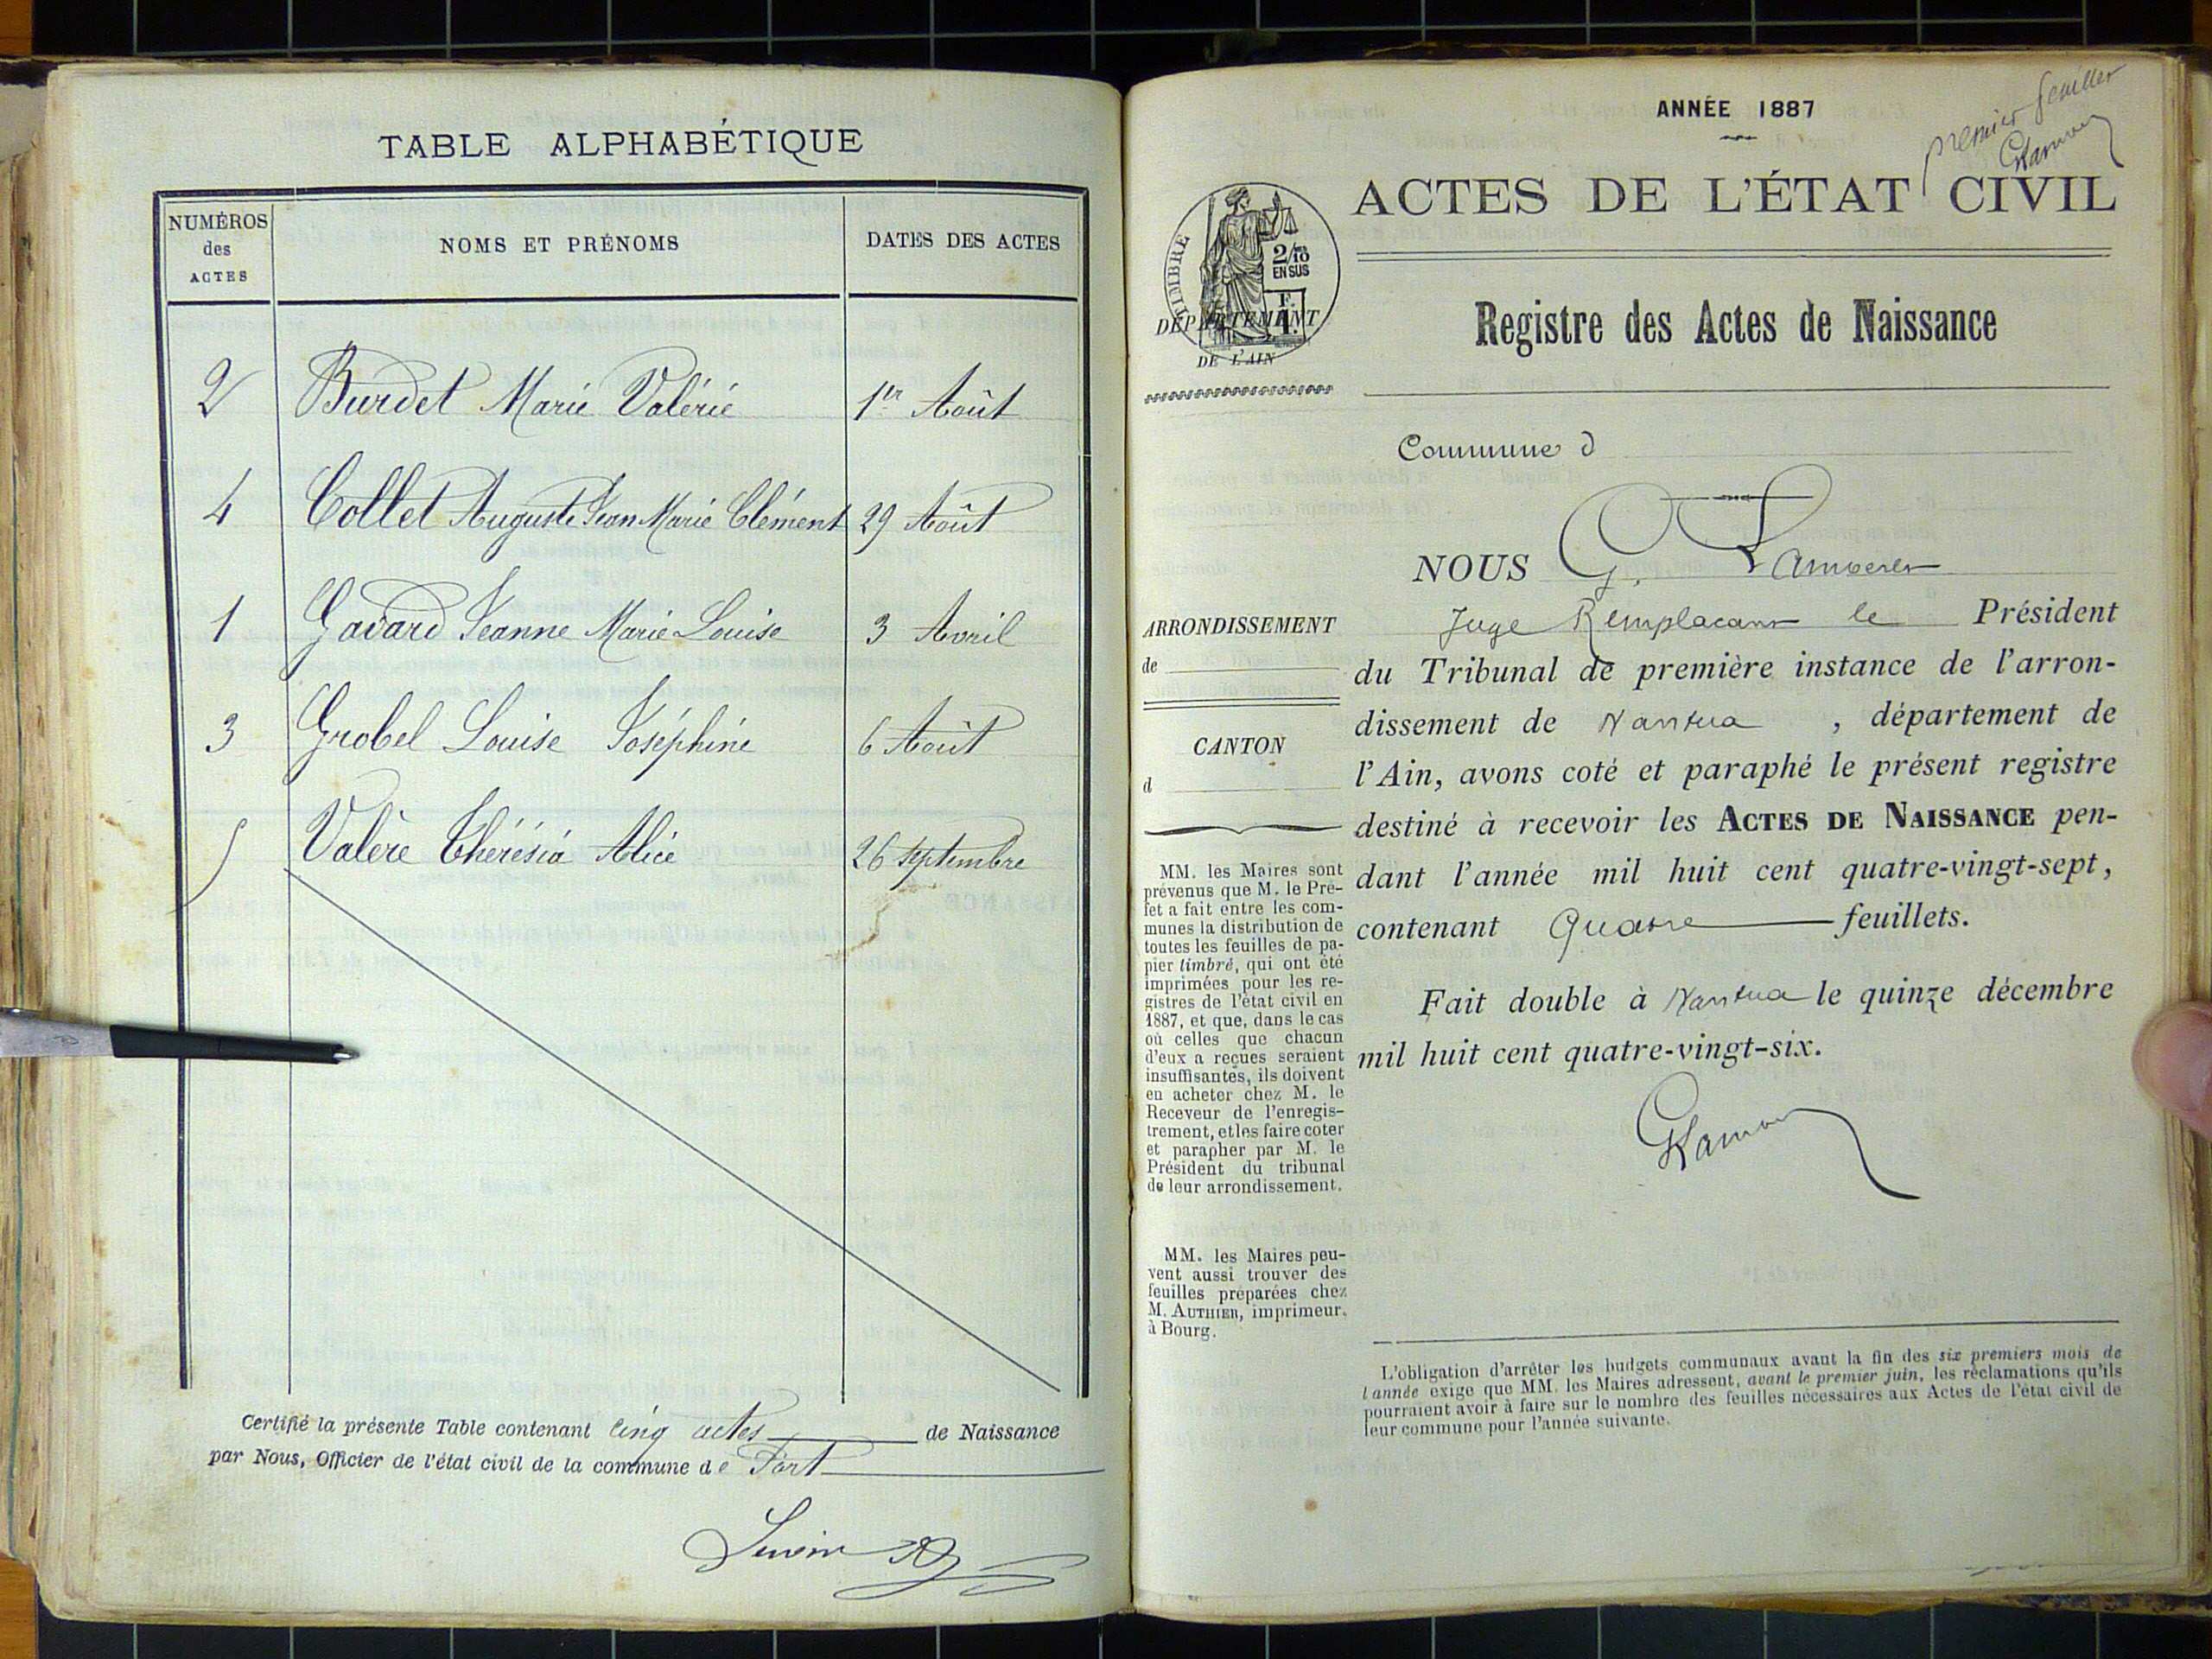 TABLE ALPHABÉTIQUE
NUMÉROS
des
ACTES
NOMS ET PRÉNOMS
DATES DES ACTES
2 Burdet Marie Valérie 1er Août
4 Collet Auguste Jean Marie Clément 29 Août
1 Gavard Jeanne Marie Louise 3 Avril
3 Grobel Louise Joséphine 6 Août
5 Valère Thérésia Alice 26 septembre
Certifié la présente Table contenant cinq actes de Naissance
par Nous, Officier de l'état civil de la commune de Port
premier feuillet
ANNÉE 1887
ACTES DE L'ÉTAT CIVIL
TIMBRE
2/10
EN SUS
DÉPARTEMENT
DE L'AIN
Registre des Actes de Naissance
Commune d
NOUS G.
Juge Remplaçant le Président
du Tribunal de première instance de l'arron-
dissement de Nantua, département de
l'Ain, avons coté et paraphé le présent registre
destiné à recevoir les ACTES DE NAISSANCE pen-
dant l'année mil huit cent quatre-vingt-sept,
contenant Quatre feuillets.
Fait double à Nantua le quinze décembre
mil huit cent quatre-vingt-six.
ARRONDISSEMENT
de
CANTON
d
MM. les Maires sont
prévenus que M. le Pré-
fet a fait entre les com-
munes la distribution de
toutes les feuilles de pa-
pier timbré, qui ont été
imprimées pour les re-
gistres de l'état civil en
1887, et que, dans le cas
où celles que chacun
d'eux a reçues seraient
insuffisantes, ils doivent
en acheter chez M. le
Receveur de l'enregis-
trement, et les faire coter
et parapher par M. le
Président du tribunal
de leur arrondissement.
MM. les Maires peu-
vent aussi trouver des
feuilles préparées chez
M. AUTHIER, imprimeur,
à Bourg.
L'obligation d'arrêter les budgets communaux avant la fin des six premiers mois de
l'année exige que MM. les Maires adressent, avant le premier juin, les réclamations qu'ils
pourraient avoir à faire sur le nombre des feuilles nécessaires aux Actes de l'état civil de
leur commune pour l'année suivante.